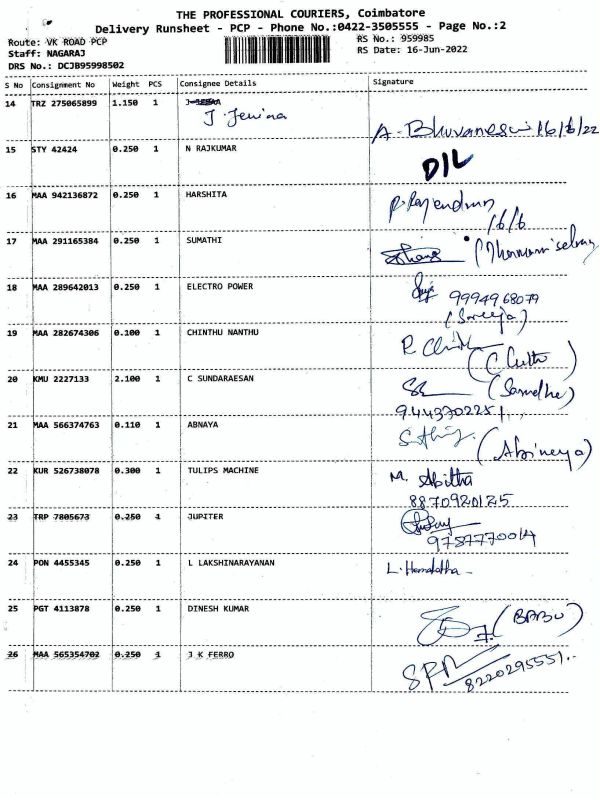 THE PROFESSIONAL COURIERS, Coimbatore
Delivery Runsheet - PCP - Phone No.:0422-3505555 - Page No.:2
Route: VK ROAD PCP RS No.: 959985
Staff: NAGARAJ RS Date: 16-Jun-2022
DRS No.: DCJB95998502
S No Consignment No Weight PCS Consignee Details Signature
14 TRZ 275065899 1.150 1
J. Jenina
A. Bhuvaneswi 16/6/22
15 STY 42424 0.250 1 N RAJKUMAR
DIL
16 MAA 942136872 0.250 1 HARSHITA
P. Rajendran
16/6
17 MAA 291165384 0.250 1 SUMATHI
18 MAA 289642013 0.250 1 ELECTRO POWER
9994968079
(Sreeja)
19 MAA 282674306 0.100 1 CHINTHU NANTHU
20 KMU 2227133 2.100 1 C SUNDARAESAN
9443702251
21 MAA 566374763 0.110 1 ABNAYA
(Abineya)
22 KUR 526738078 0.300 1 TULIPS MACHINE
M. Abitha
8870920125
23 TRP 7805673 0.250 1 JUPITER
9787770014
24 PON 4455345 0.250 1 L LAKSHINARAYANAN
L. Hemalatha
25 PGT 4113878 0.250 1 DINESH KUMAR
(BABU)
26 MAA 565354702 0.250 1 J K FERRO
8220295551